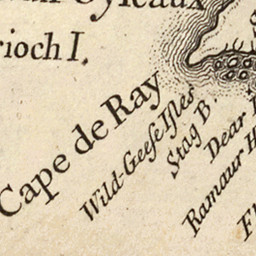 rioch I.
Cape de Ray
Wild-Geeſe Iſles
Stag B.
Dear
Ramaur H